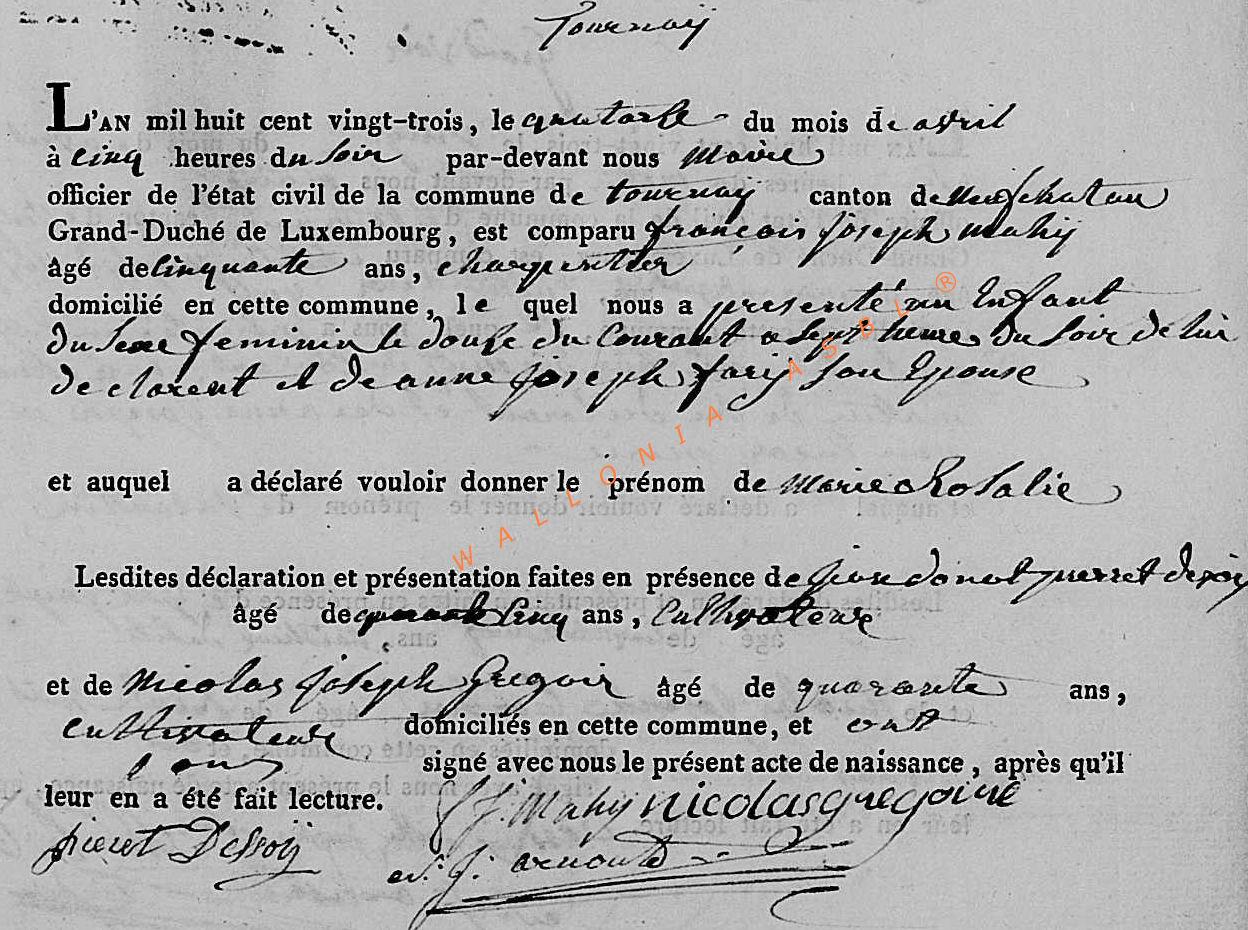 Tournay
L'AN mil huit cent vingt-trois, le quatorse du mois de avril
à cinq heures du soir par-devant nous Maire
officier de l'état civil de la commune de tournay canton de Neufchatau
Grand-Duché de Luxembourg, est comparu françois joseph mahy
âgé de cinquante ans, charpentier
domicilié en cette commune, le quel nous a presenté un Enfant
du Sexe feminin le douse du Courant a sept heures du Soir de lui
declarent et de anne joseph fary son Epouse
et auquel a déclaré vouloir donner le prénom de Marie Rosalie
Lesdites déclaration et présentation faites en présence de
âgé de cinq ans, Cultivateur
et de Nicolas joseph Gregoir âgé de quarante ans,
cultivateure domiciliés en cette commune, et ont
tous signé avec nous le présent acte de naissance, après qu'il
leur en a été fait lecture. f j. Mahy nicolas gregoire
pieret Dessoij j. arnould
WALLONIA ASBL ®